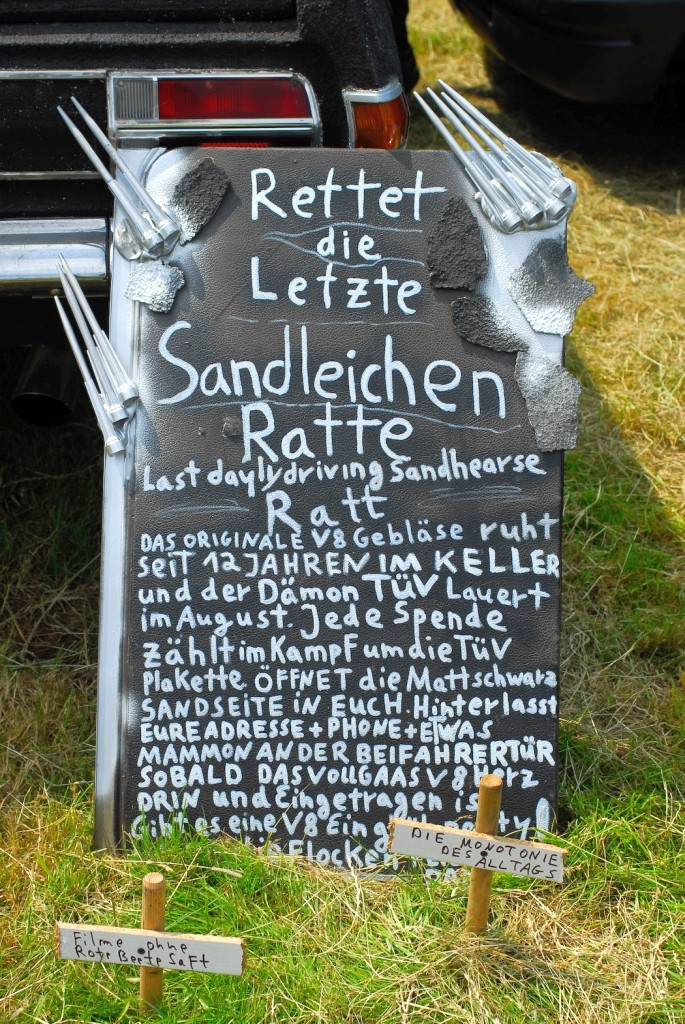 Rettet
die
Letzte
Sandleichen
Ratte
Last daylydriving Sandhearse
Ratt
DAS ORIGINALE V8 Gebläse ruht
seit 12 JAHREN IM KELLER
und der Dämon TÜV Lauert
im August. Jede Spende
zählt im Kampf um die TÜV
Plakette. ÖFFNET die Mattschwarz
SANDSEITE IN EUCH. Hinterlasst
EURE ADRESSE + PHONE + ETWAS
MAMMON AN DER BEIFAHRERTÜR
SOBALD DAS VOLLGAAS V8 Herz
DRIN und Eingetragen is
Gibt es eine V8
Flocken
DIE MONOTONIE
DES ALLTAGS
Filme ohne
Rote Beete Saft